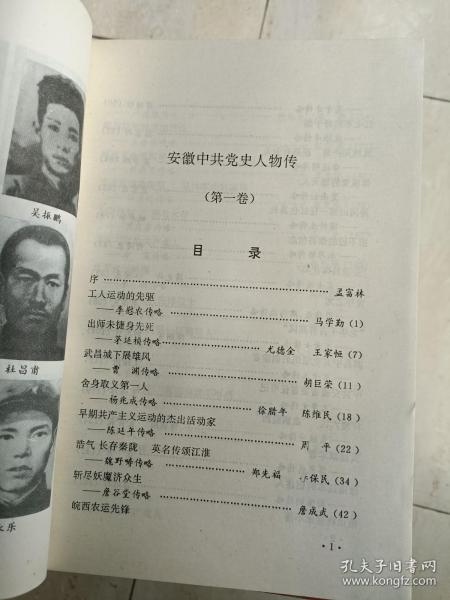 吴振鹏
杜昌甫
乐
安徽中共党史人物传
(第一卷)
目 录
序 …………………… 孟富林
工人运动的先驱
——李慰农传略 …………………… 马学勤(1)
出师未捷身先死
——茅延桢传略 …………………… 尤德全 王家恒(7)
武昌城下展雄风
——曹 渊传略 …………………… 胡巨荣(11)
舍身取义第一人
——杨兆成传略 …………………… 徐腊年 陈维民(18)
早期共产主义运动的杰出活动家
——陈延年传略 …………………… 周 平(22)
浩气长存秦陇 英名传颂江淮
——魏野畴传略 …………………… 郑先福 保民(34)
斩尽妖魔济众生
——詹谷堂传略 …………………… 詹成武(42)
皖西农运先锋
·1·
孔夫子旧书网
www.kongfz.com